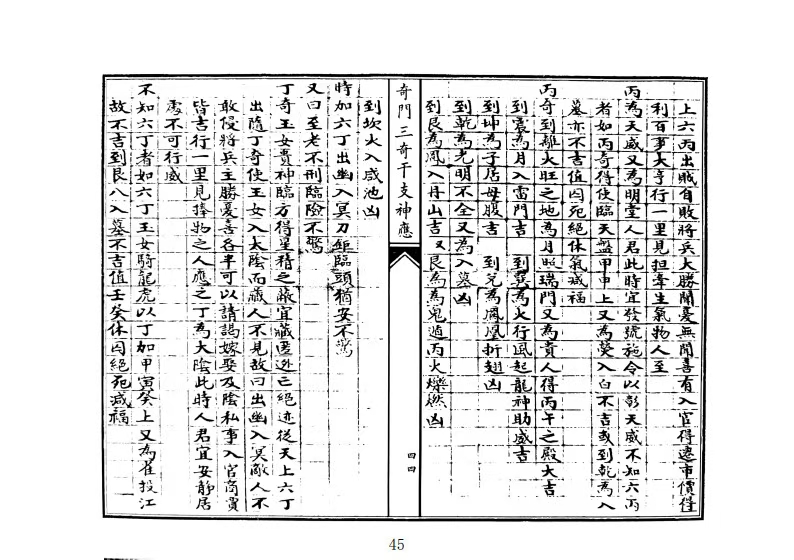 上六丙出賊自敗將兵大勝聞憂無聞喜有入官得遷市價得
利百事大亨行一里見担牽生氣物人至
丙為天威又為明堂人君此時宜發號施令以彰天威不知六丙
者如丙奇得使臨天盤甲申上又為熒入白不吉或到乾為入
墓亦不吉值囚死絕休氣減福
丙奇到離火旺之地為月照端門又為貴人得丙午之殿大吉
到震為月入雷門吉 到巽為火行風起龍神助威吉
到坤為子居母腹吉 到兌為鳳凰折翅凶
到乾為光明不全又為入墓凶
到艮為鳳入丹山吉又艮為為鬼道丙火爍燃凶
奇門三奇干支神應
四四
到坎火入咸池凶
時加六丁出幽入冥刀鉅臨頭猶安不驚
又曰至老不刑臨險不驚
丁奇玉女貴神臨方得星精之蔽宜藏匿逃亡絕迹從天上六丁
出隨丁奇使玉女入太陰而藏人不見故曰出幽入冥敵人不
敢侵將兵主勝憂喜各半可以請謁嫁娶及陰私事入官商賈
皆吉行一里見捧物之人應之丁為大陰此時人君宜安靜居
處不可行威
不知六丁者如六丁玉女騎龍虎以丁加甲寅癸上又為雀投江
故不吉到艮八入墓不吉值壬癸休囚絕死減福
45